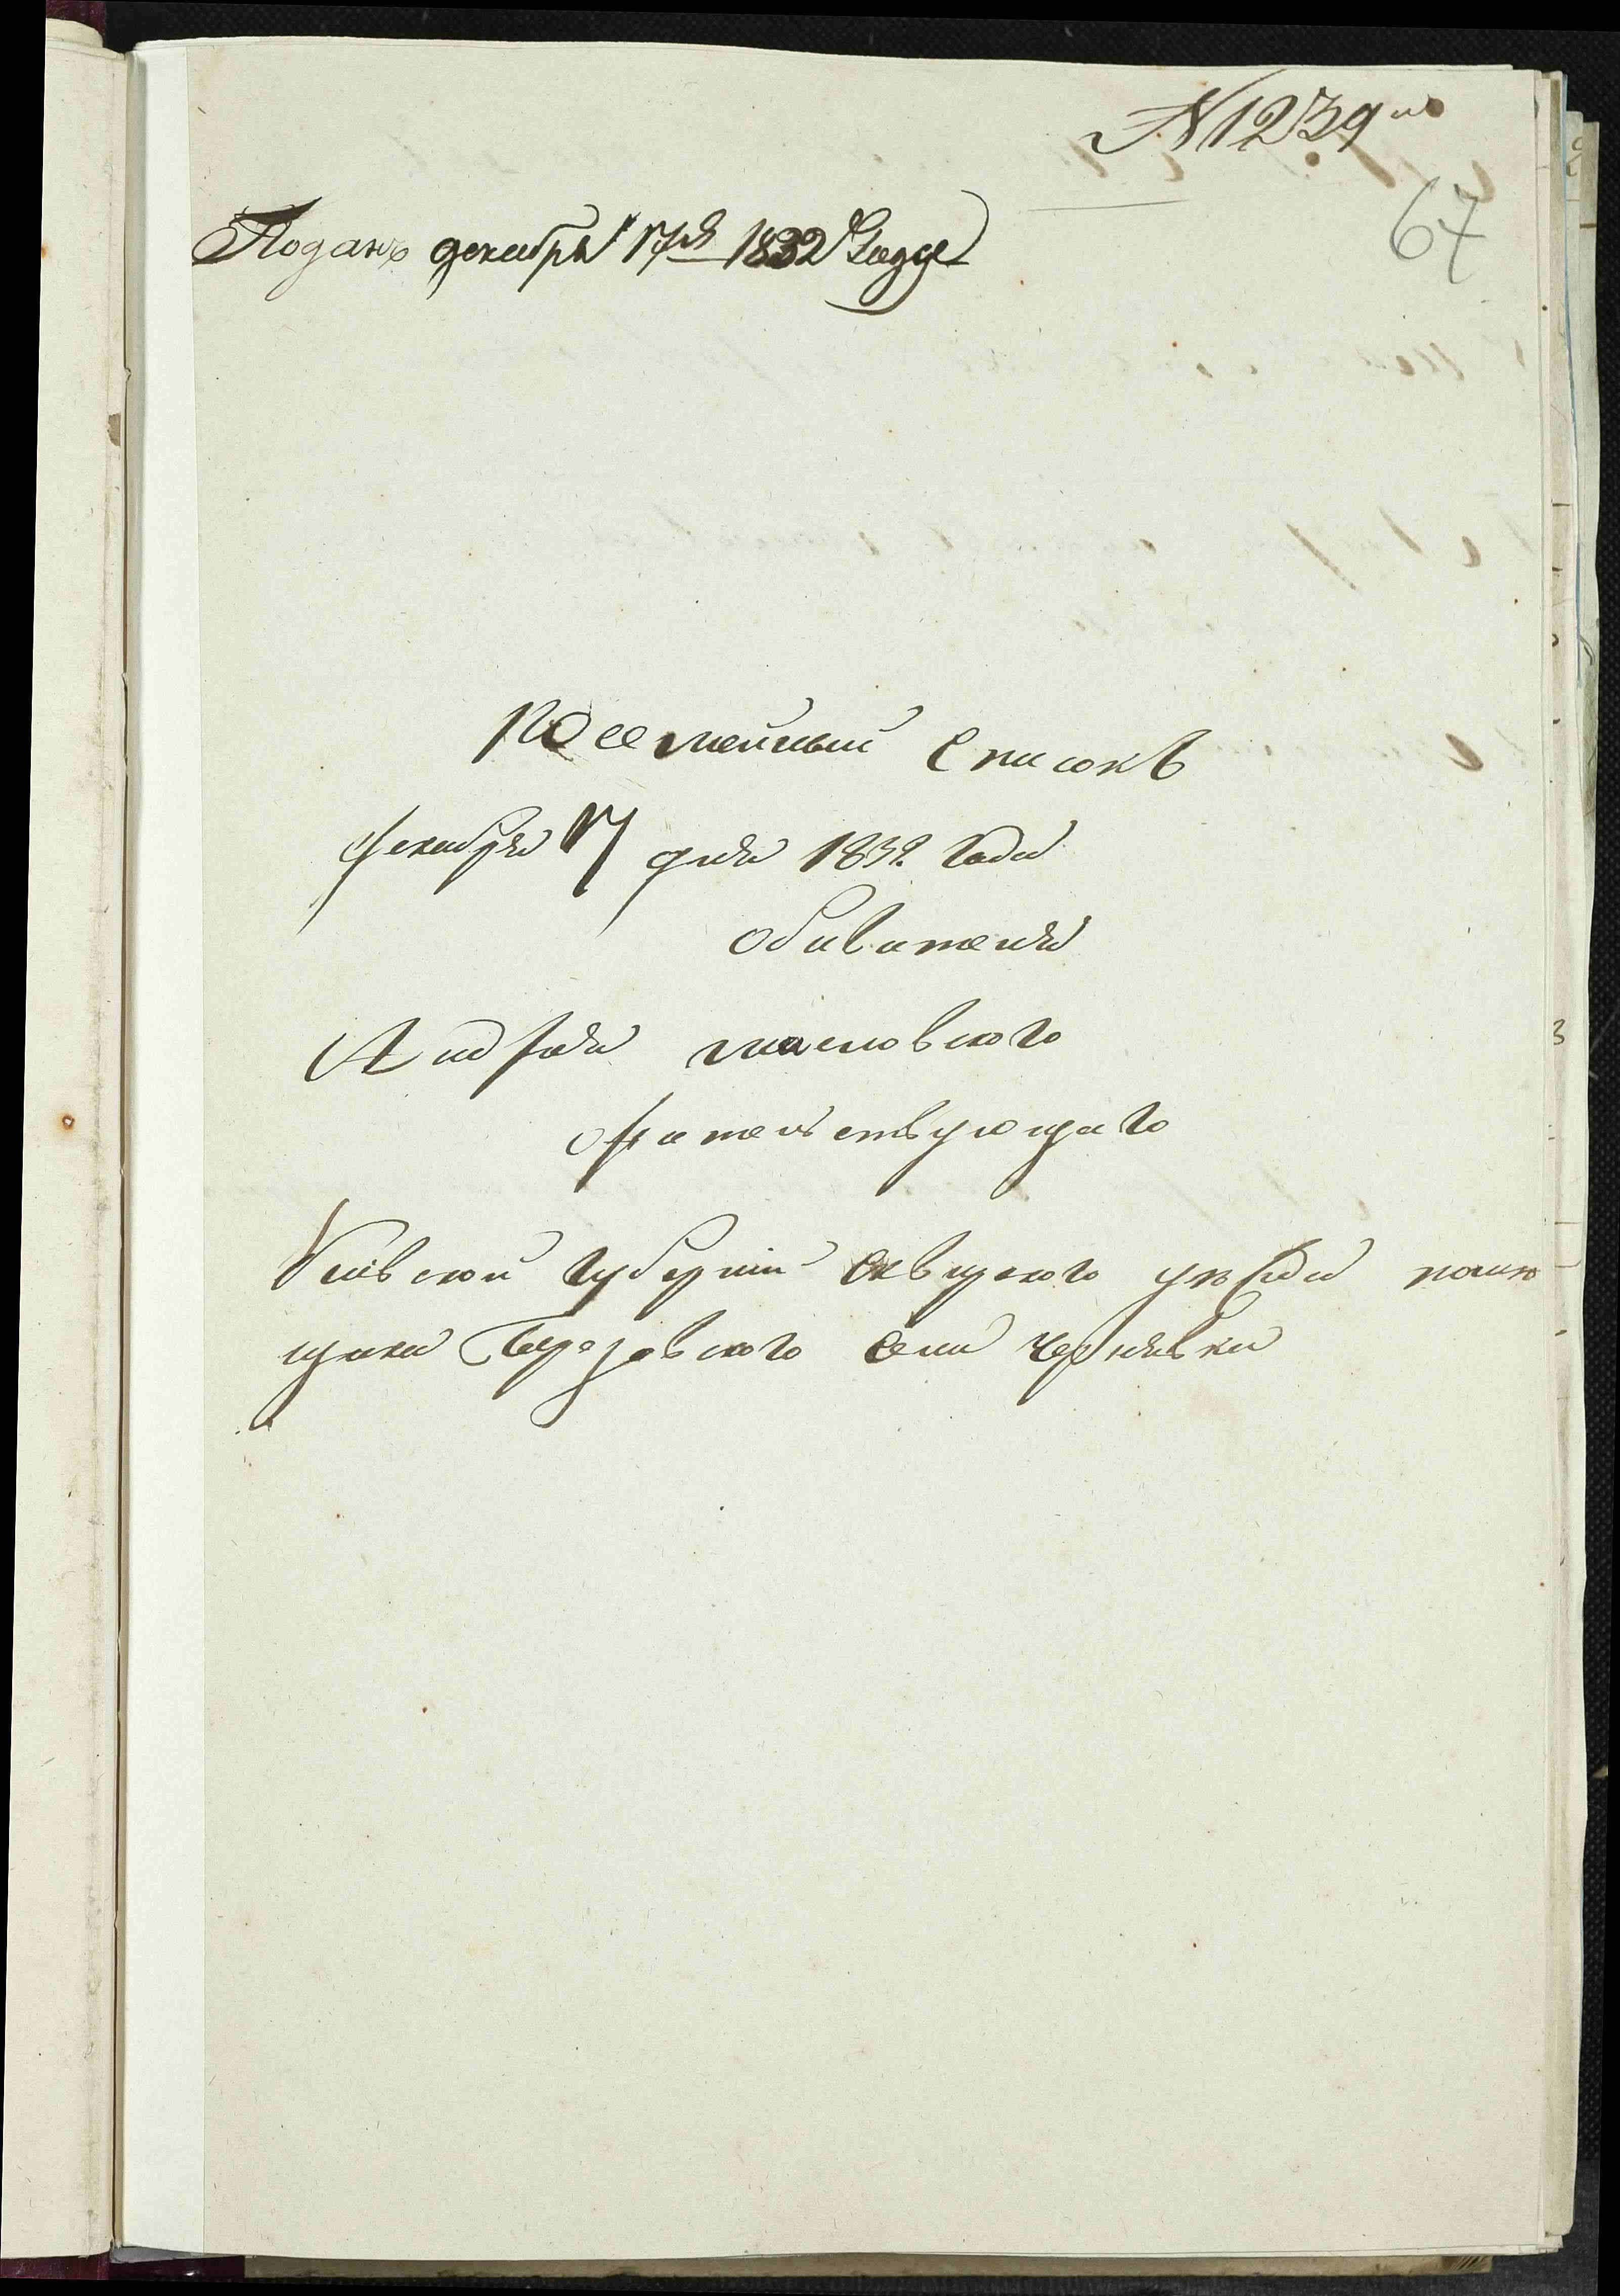 N 1239й
67
Поданъ декабря 17го 1832 Года
Посемейный Списокъ
Декабря 17 дня 1832 Года
Обивателя
Андрея масловского
Жительствующаго
Кіевской Губерніи Сквирского уезда поме
щика Березовского Села Чернявки